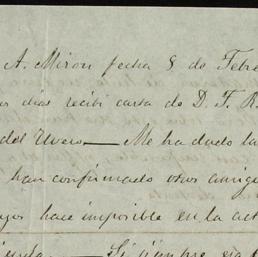 A. Miron fecha 8 de Febre
os dias recibi carta de D. F. R.
del Uvero — Me ha dado la
han confirmado otros amigo
hace imposible en la act
Siempre